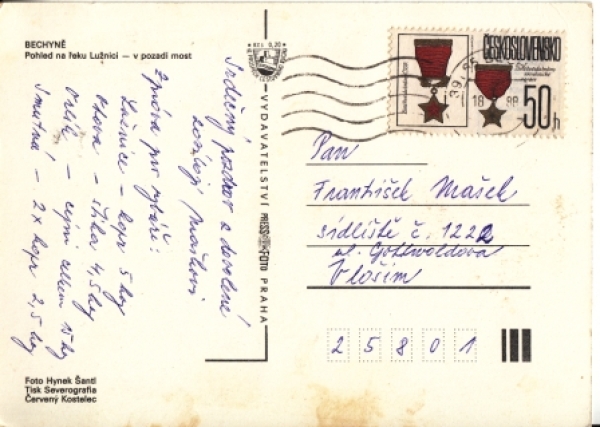 BECHYNĚ
Pohled na řeku Lužnici — v pozadí most
Srdečný pozdrav z dovolené
Zpráva pro rybáře:
Lužnice – kapr 5 kg
Otava – štika 4,5 kg
Orlík – celkem 15 kg
Smutná – 2x kapr 2,5 kg
Foto Hynek Šantl
Tisk Severografia
Červený Kostelec
VYDAVATELSTVÍ PRESSFOTO PRAHA
ČESKOSLOVENSKO
50h
Pan
František Mašek
sídliště č. 1222
ul. Gottwaldova
Vlašim
25801